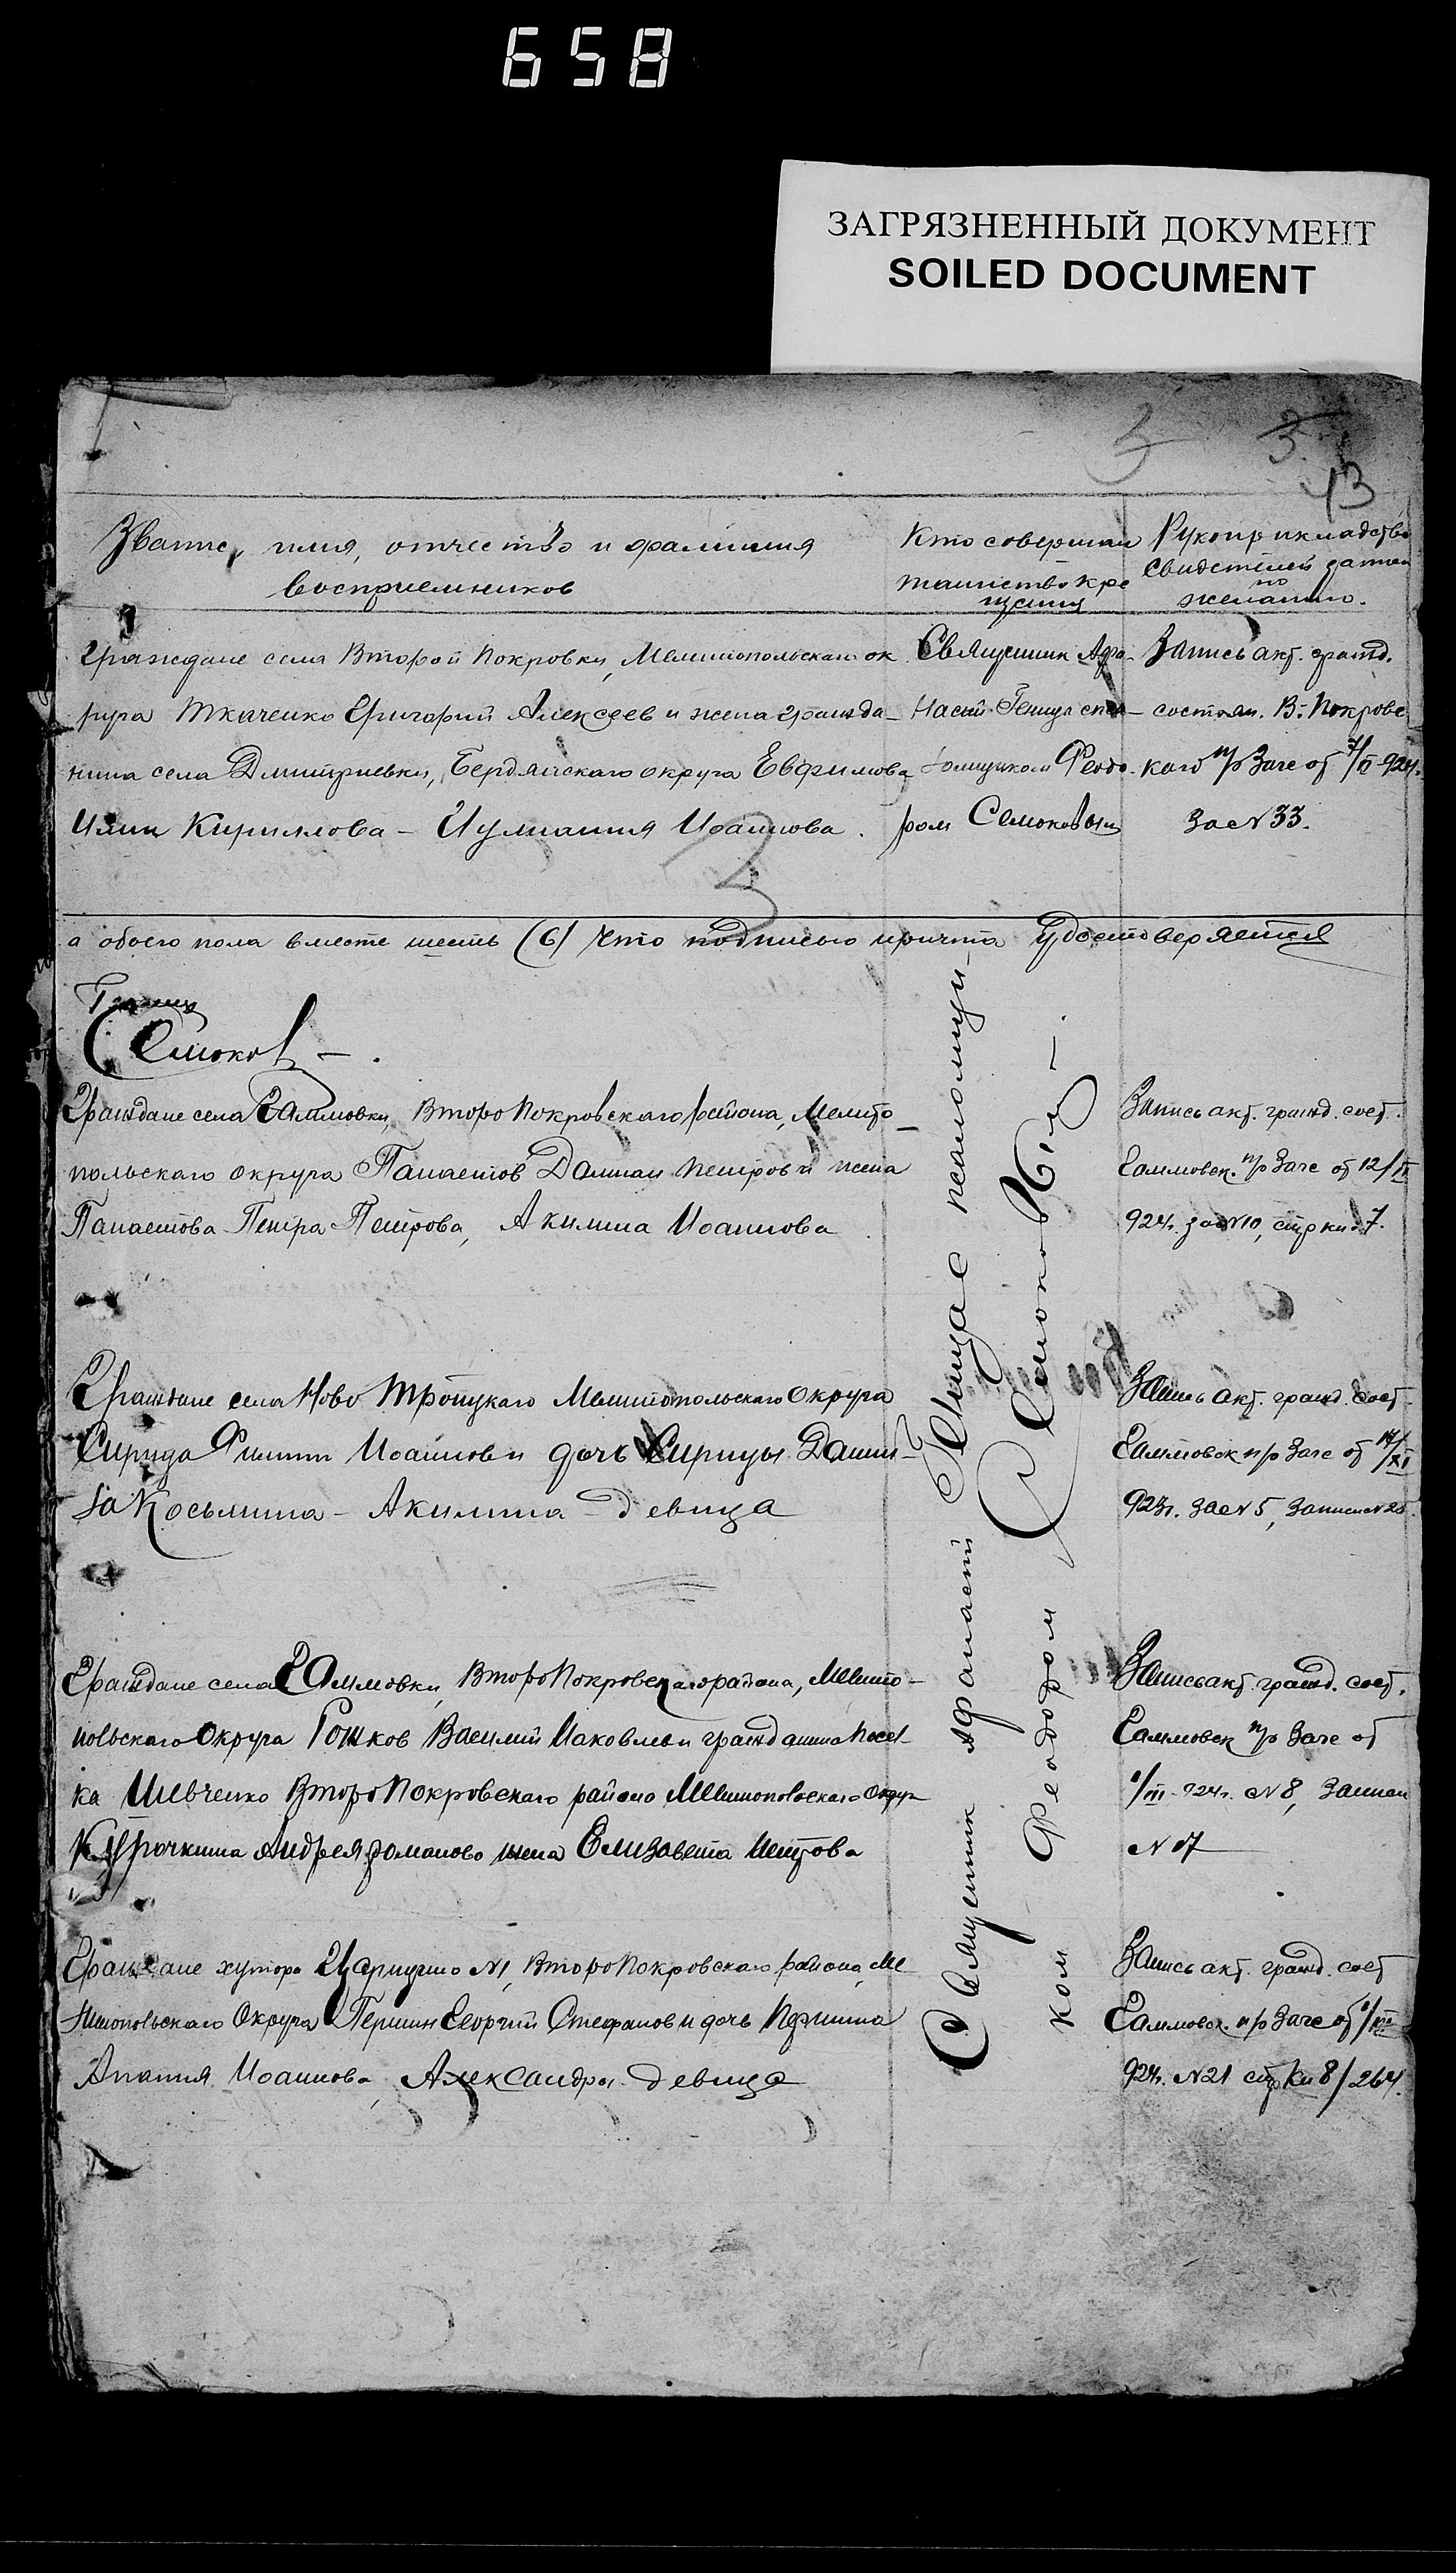 658
ЗАГРЯЗНЕННЫЙ ДОКУМЕНТ
SOILED DOCUMENT
3
3
13
Звание, имя, отчество и фамилия
восприемников
Кто совершал
таинство кре
щения
Рукоприкладство
свидетелей записи
по
желанию.
Граждане села Второй Покровки, Мелитопольскаго ок
руга Ткаченко Григорий Алексеев и жена гражда-
нина села Дмитриевки, Бердянскаго округа Евфимова
Кириллова - Иулиания Иоаннова.
Священник Афа-
насий с пса-
ломщиком Феодо-
ром Семоковым
Запись акт. гражд.
состоян. В.-Покровс
каго при Загсе от 7/II-924г.
за №33.
3
а обоего пола вместе шесть (6) что подписью причта удостоверяется
Семоков -.
Граждане села Ефимовки, Второ Покровскаго района, Мелито-
польскаго округа Панаетов Дамиан Петров и жена
Панаетова Петра Петрова, Акилина Иоаннова
Запись акт. гражд. сост.
при Загсе от 12/II
924г. за №10, стр кни. 7.
Граждане села Ново Троицкаго Мелитопольскаго округа
Филипп Иоаннов и дочь Дании-
ла Косьмина - Акилина - девица
Запись акт. гражд. сост.
при Загсе от 17/XI
923г. за №5, записи №25.
Граждане села Второ Покровскаго района, Мелито-
польскаго округа Рошков Василий Иаковлев и гражданина посел-
ка Шевченко Второ Покровскаго района Мелитопольскаго округ
Курочкина Андрея Романова жена Елизавета Петрова
Запись акт. гражд. сост.
при Загсе от
1/III-924г. №8, записи
№17
Граждане хутора №1, Второ Покровскаго района, Ме
литопольскаго округа Георгий Стефанов и дочь
Иоаннова, Александра - девица
Запись акт. гражд. сост
при Загсе от 1/III
924г. №21 стр кн 8/264.
Священник Афанасий с псаломщи-
ком Феодором Семоковым -.